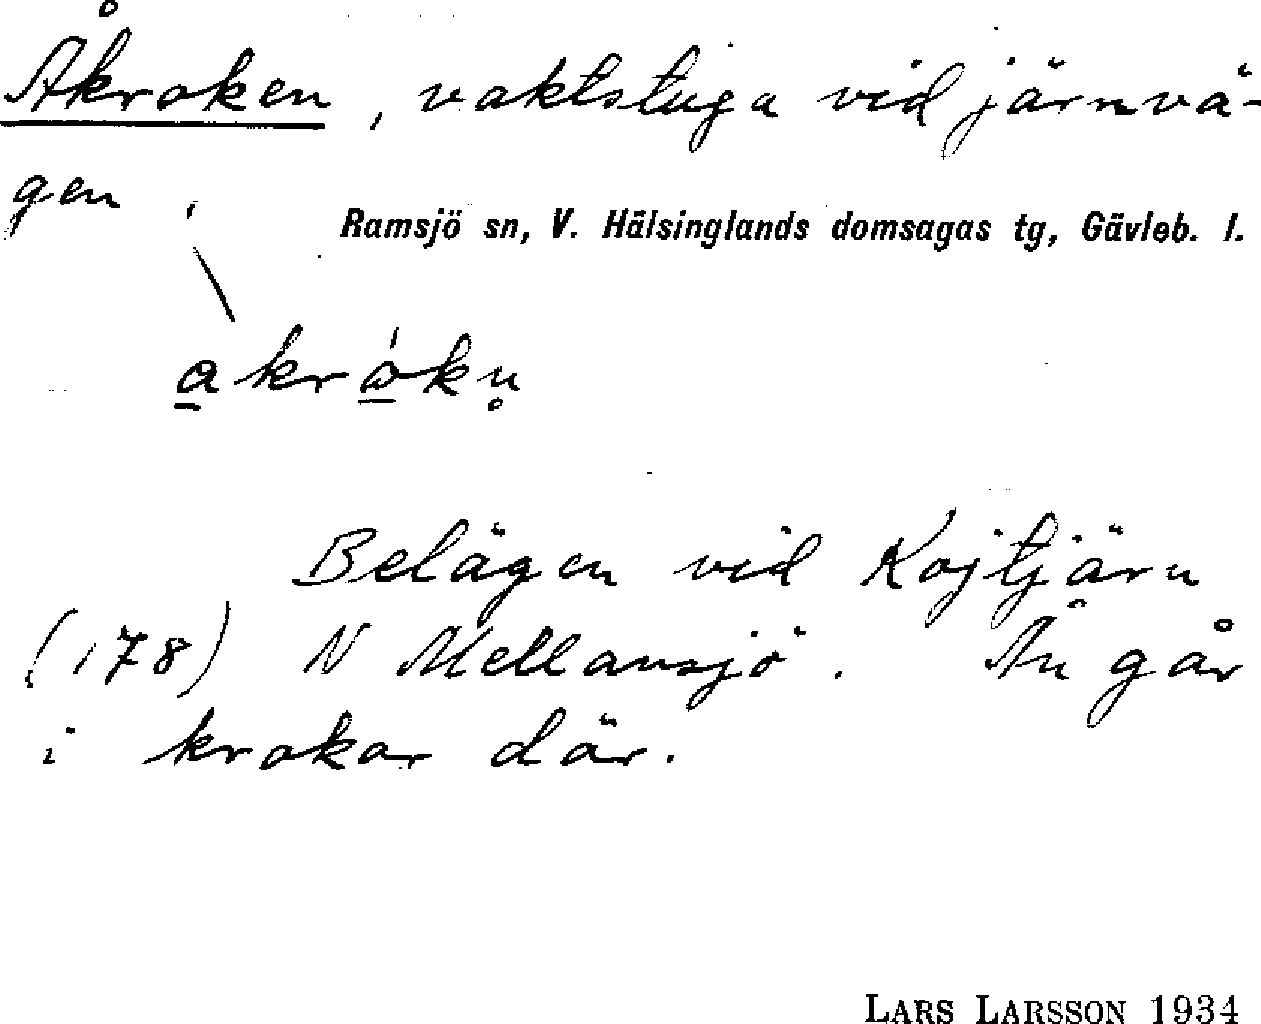 Åkroken, vaktstuga vid järnvä-
gen,
Ramsjö sn, V. Hälsinglands domsagas tg, Gävleb. l.
Belägen vid Kojtjärn
(178) N Mellansjö. Ån går
i krokar där.
LARS LARSSON 1934